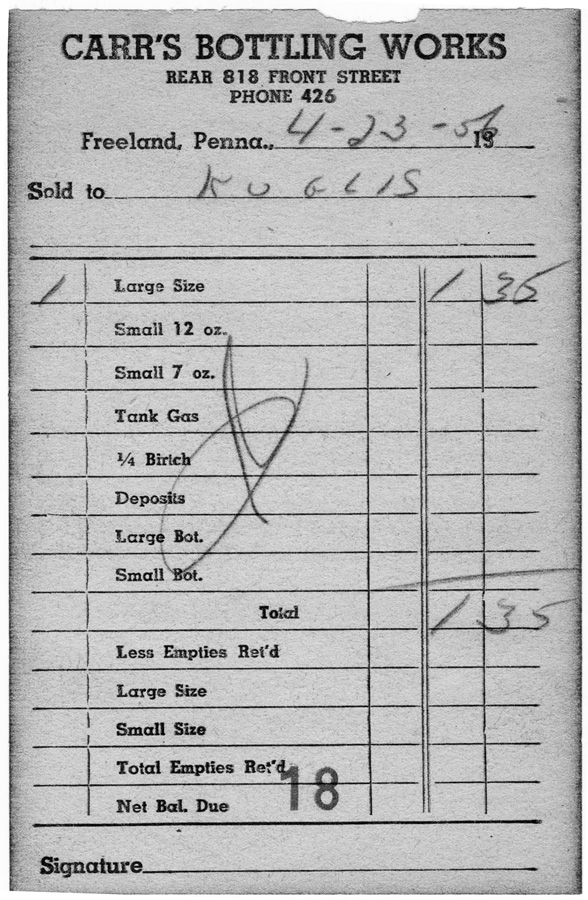 CARR'S BOTTLING WORKS
REAR 818 FRONT STREET
PHONE 426
Freeland, Penna., 4-23-56 19
Sold to KUGLIS
1 Large Size 1 35
Small 12 oz.
Small 7 oz.
Tank Gas
¼ Birtch
Deposits
Large Bot.
Small Bot.
Total 1 35
Less Empties Ret'd
Large Size
Small Size
Total Empties Ret'd
18
Net Bal. Due
Signature